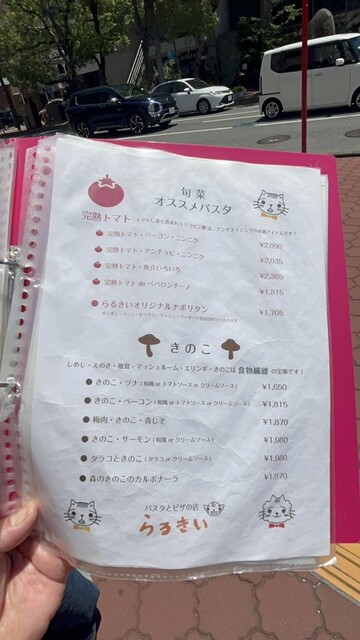 旬菜
オススメパスタ
完熟トマト
完熟トマト・ベーコン・ニンニク ¥2,090
完熟トマト・アンチョビ・ニンニク ¥2,035
完熟トマト・魚介いろいろ ¥2,365
完熟トマト de ペペロンチーノ ¥1,815
らるきいオリジナルナポリタン ¥1,705
きのこ
しめじ・えのき・椎茸・マッシュルーム・エリンギ・きのこは 食物繊維 の宝庫です！
● きのこ・ツナ (和風 or トマトソース or クリームソース) ¥1,650
● きのこ・ベーコン (和風 or トマトソース or クリームソース) ¥1,815
● 梅肉・きのこ・青じそ ¥1,870
● きのこ・サーモン (和風 or クリームソース) ¥1,980
● タラコときのこ (タラコ or クリームソース) ¥1,980
● 森のきのこのカルボナーラ ¥1,870
パスタとピザの店
らるきい